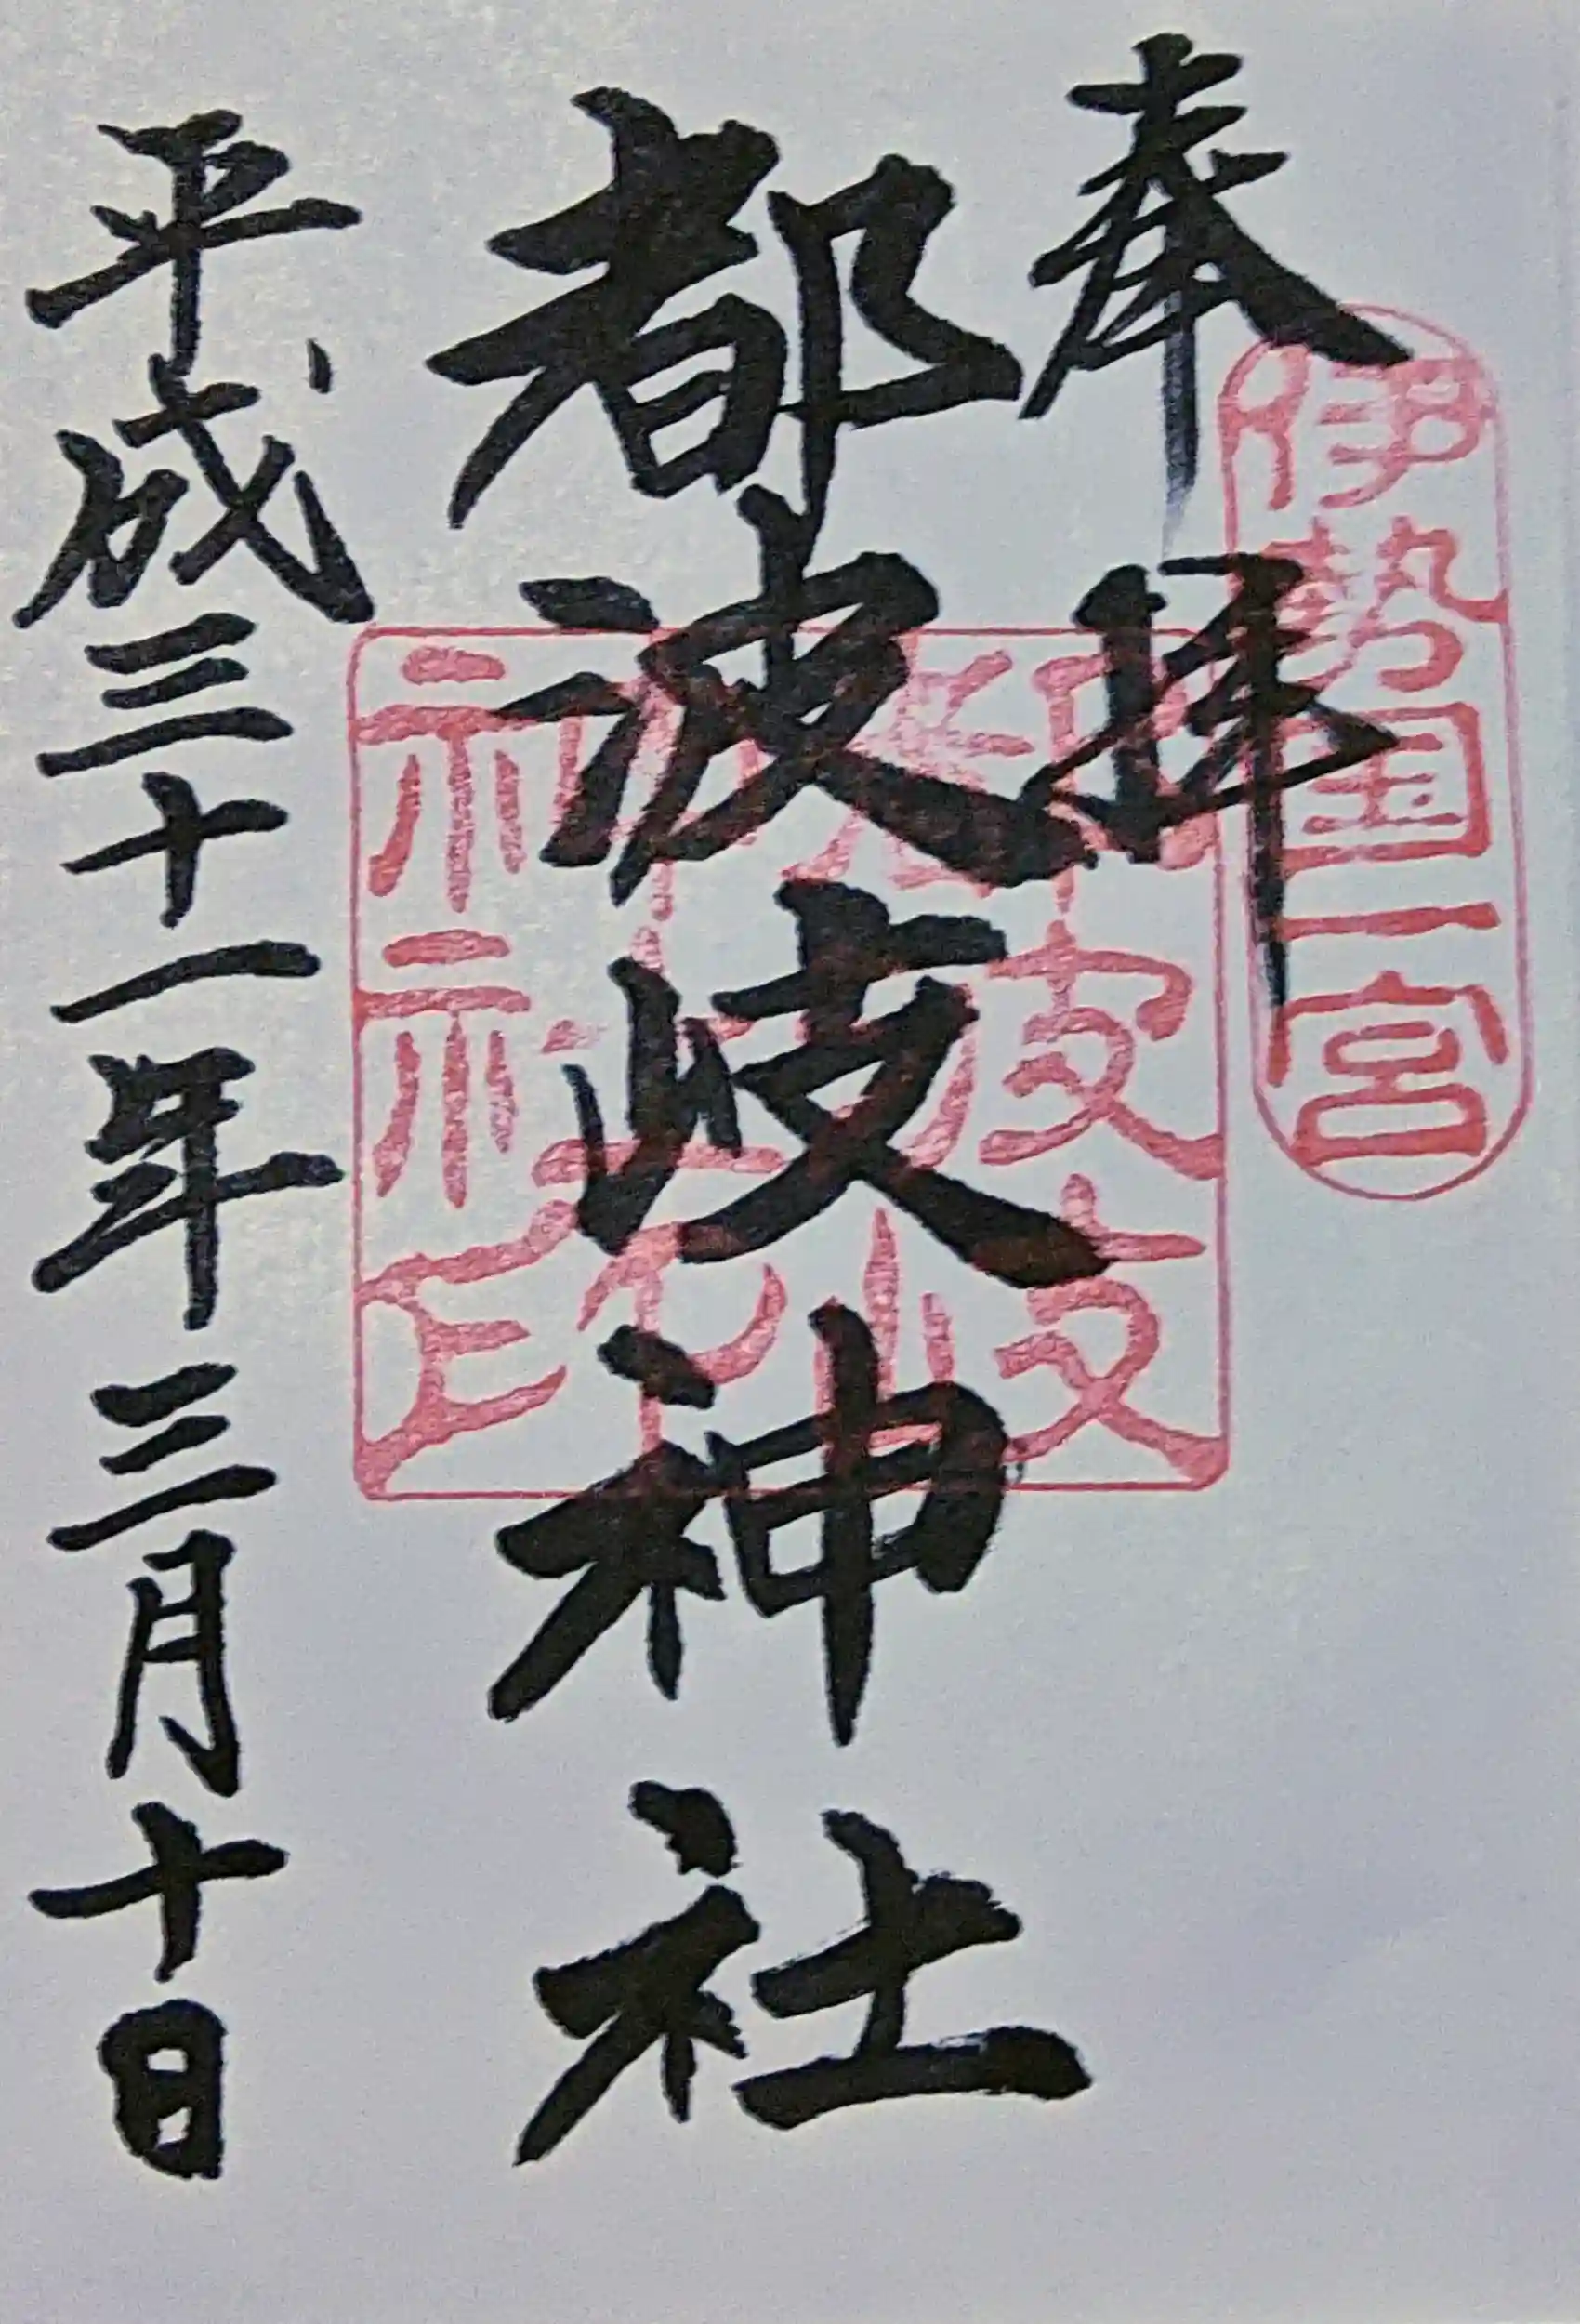 奉拝
伊勢国一宮
都波岐神社
都波岐神社印
平成三十一年三月十日